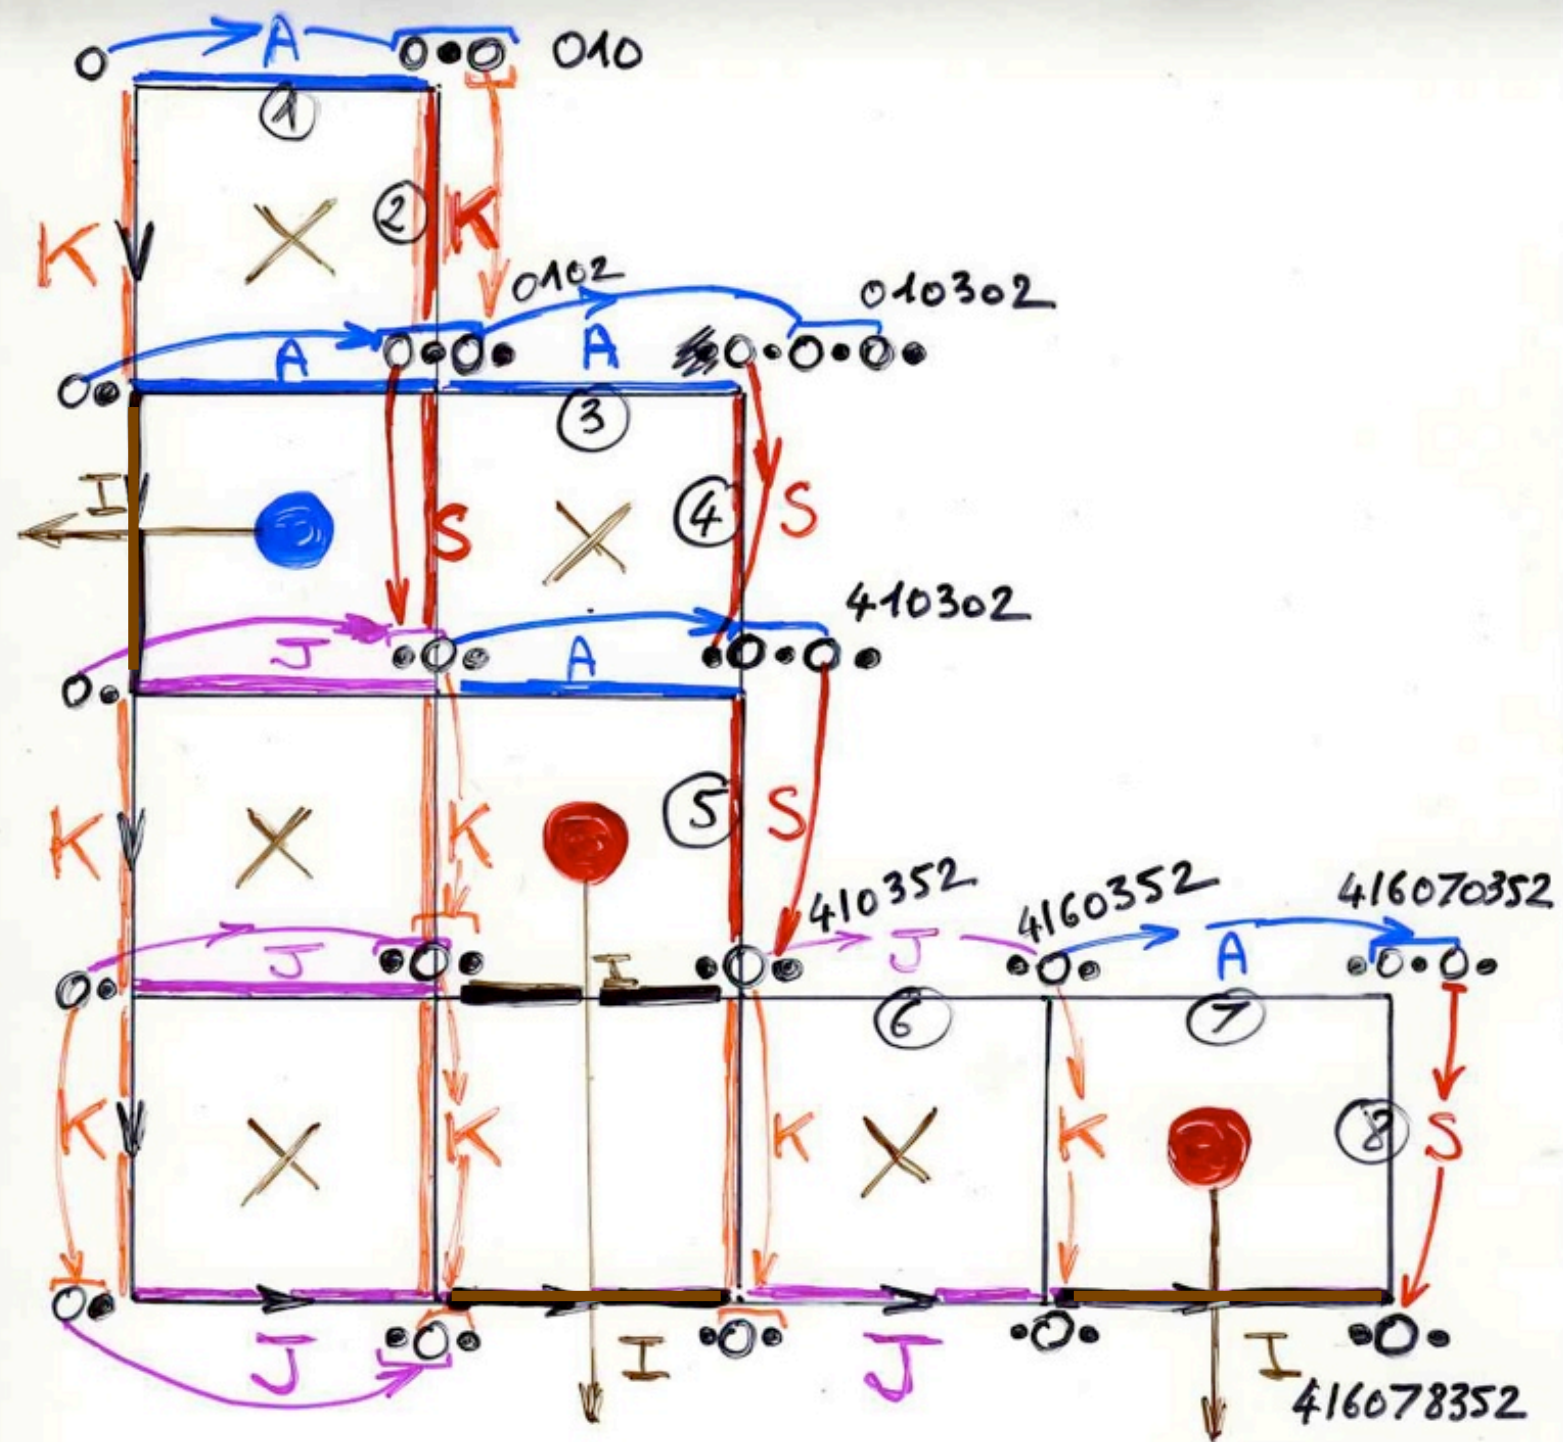 A 010
1
K 2 K
0102 010302
A A
3
I S 4 S
410302
J A
K K 5 S
410352 4160352 416070352
J I J A
6 7
K K K K 8 S
J I J I
416078352